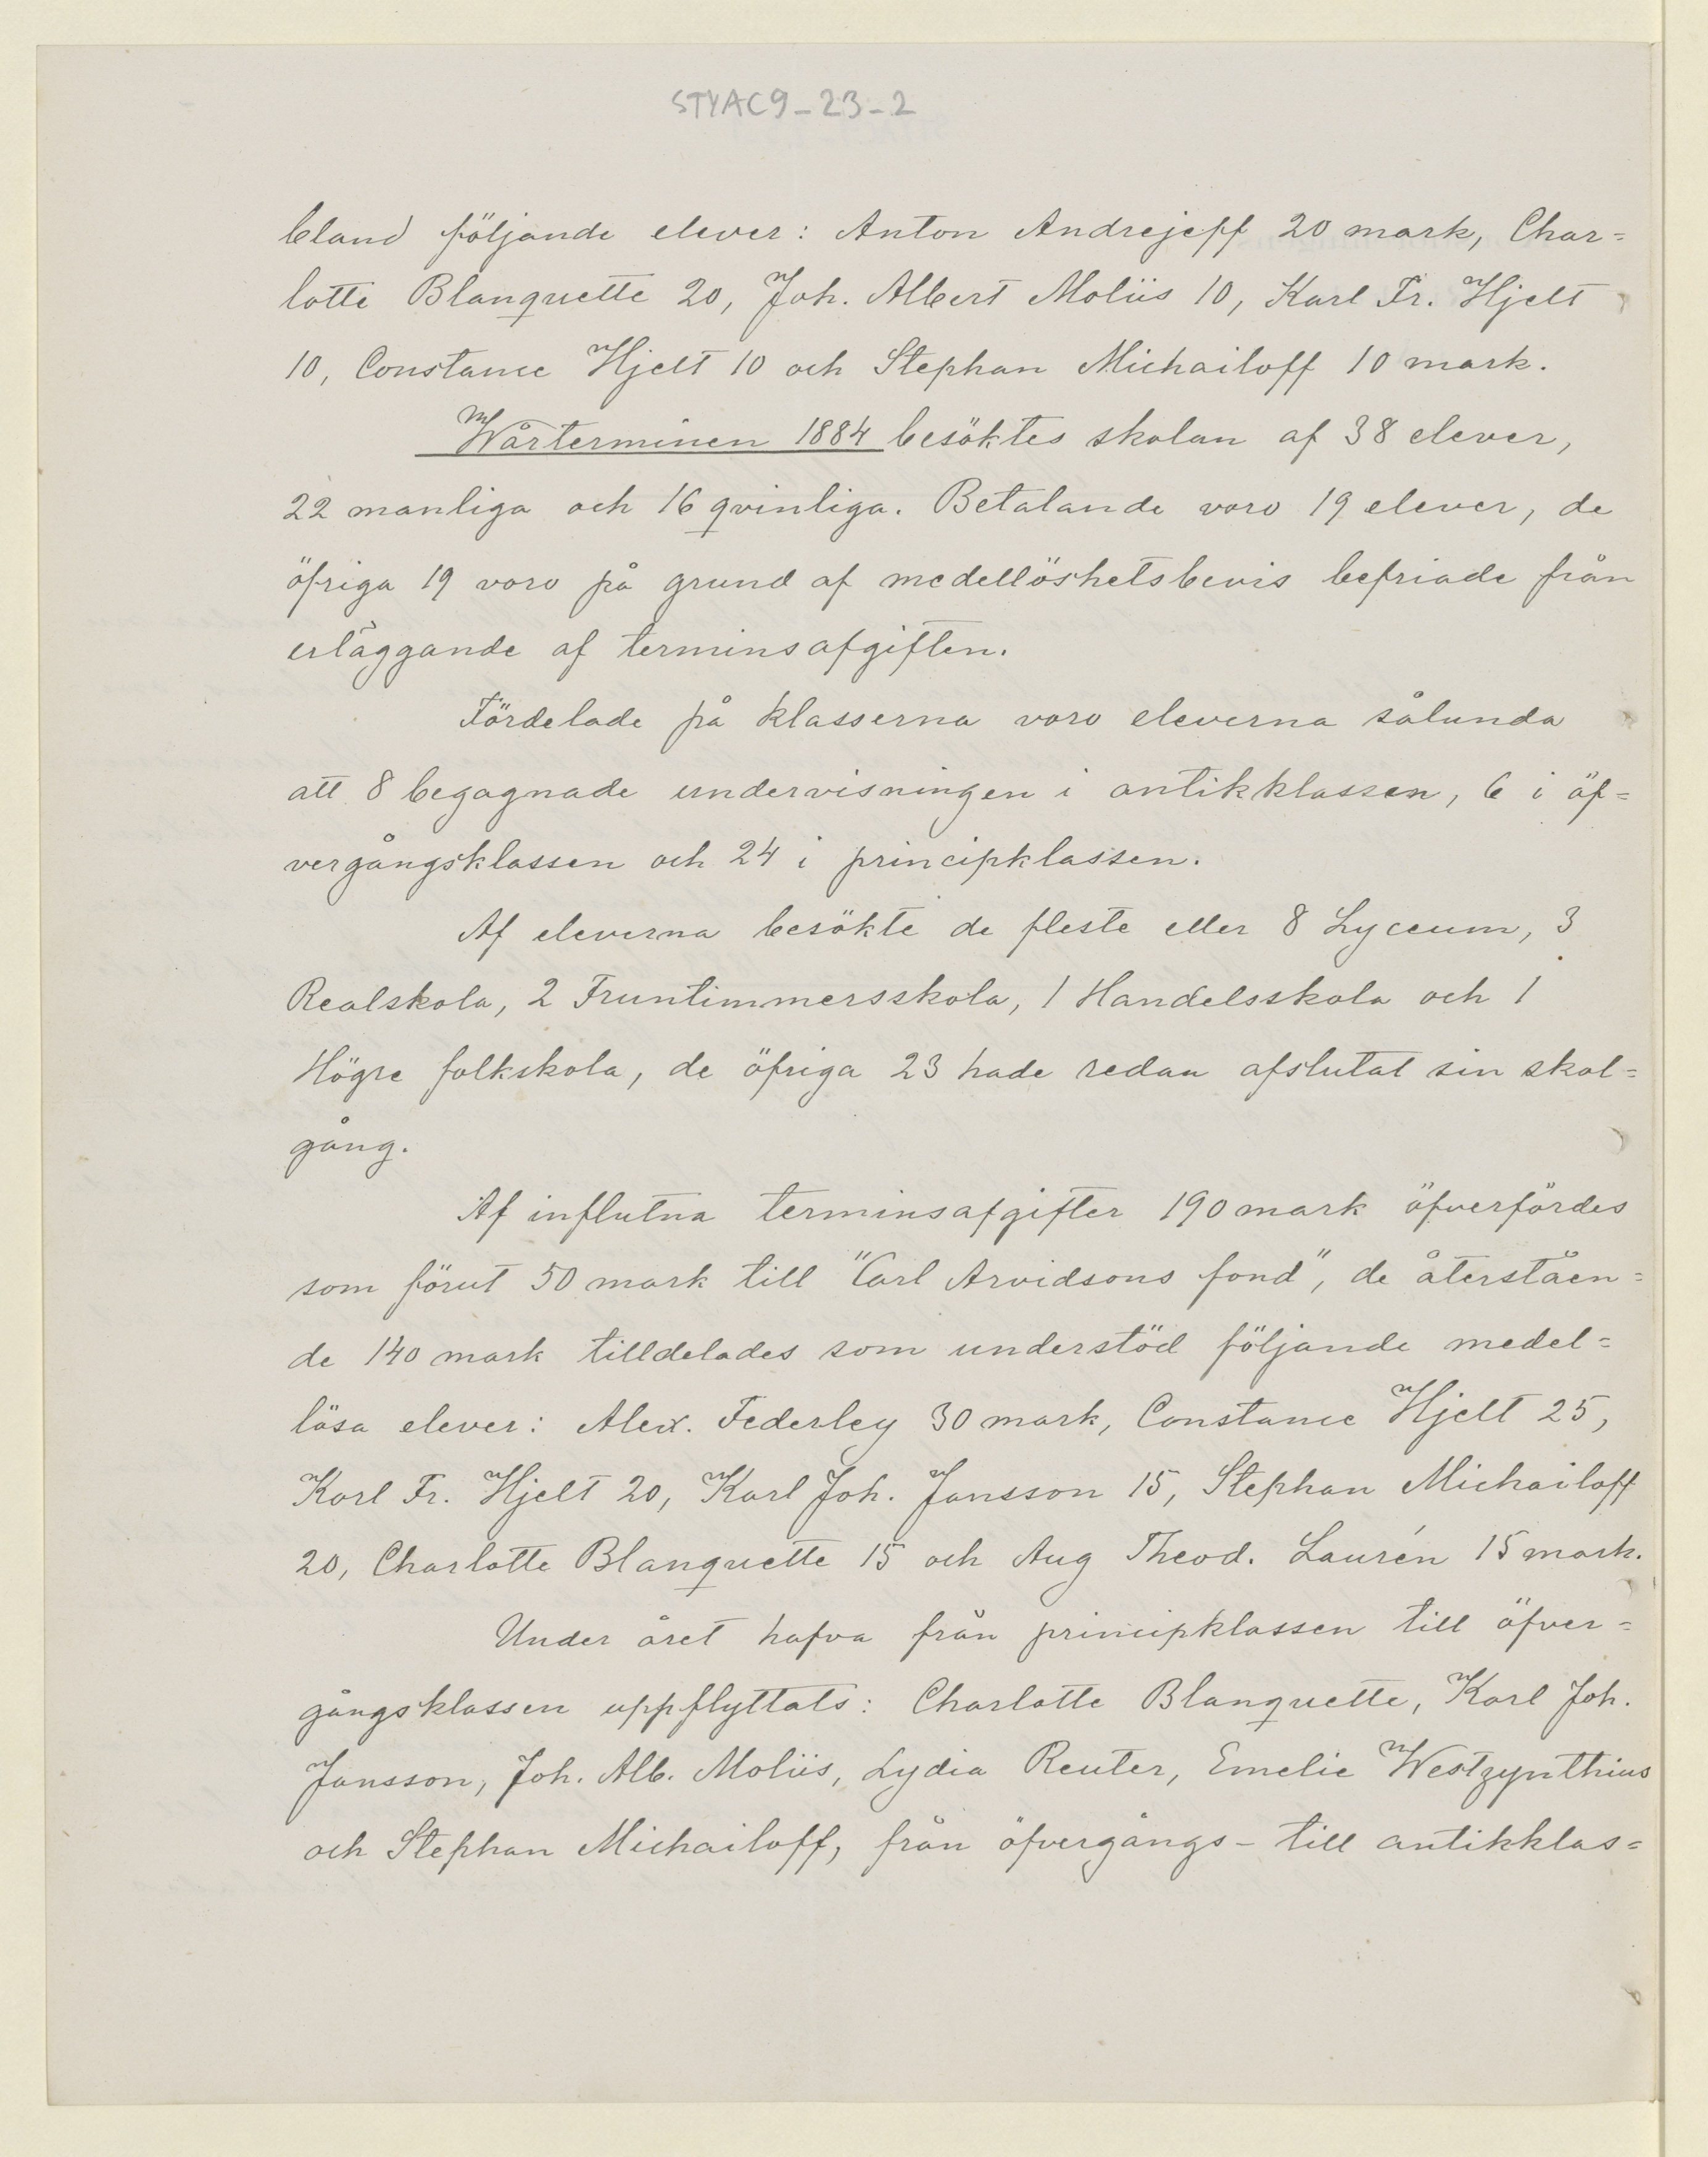 STYAC9-23-2
bland följande elever: Anton Andrejeff 20 mark, Char=
lotte Blanquette 20, Joh. Albert Moliis 10, Karl Fr. Hjelt
10, Constance Hjelt 10 och Stephan Michailoff 10 mark.
Wårterminen 1884 besöktes skolan af 38 elever,
22 manliga och 16 qvinliga. Betalande voro 19 elever, de
öfriga 19 voro på grund af medellöshetsbevis befriade från
erläggande af terminsafgiften.
Fördelade på klasserna voro eleverna sålunda
att 8 begagnade undervisningen i antikklassen, 6 i öf=
vergångsklassen och 24 i principklassen.
Af eleverna besökte de fleste eller 8 Lyceum, 3
Realskola, 2 Fruntimmersskola, 1 Handelsskola och 1
Högre folkskola, de öfriga 23 hade redan afslutat sin skol=
gång.
Af influtna terminsafgifter 190 mark öfverfördes
som förut 50 mark till "Carl Arvidsons fond", de återståen=
de 140 mark tilldelades som understöd följande medel=
lösa elever: Alex. Federley 30 mark, Constance Hjelt 25,
Karl Fr. Hjelt 20, Karl Joh. Jansson 15, Stephan Michailoff
20, Charlotte Blanquette 15 och Aug Theod. Laurén 15 mark.
Under året hafva från principklassen till öfver=
gångsklassen uppflyttats: Charlotte Blanquette, Karl Joh.
Jansson, Joh. Alb. Moliis, Lydia Reuter, Emelie Westzynthius
och Stephan Michailoff, från öfvergångs- till antikklas=